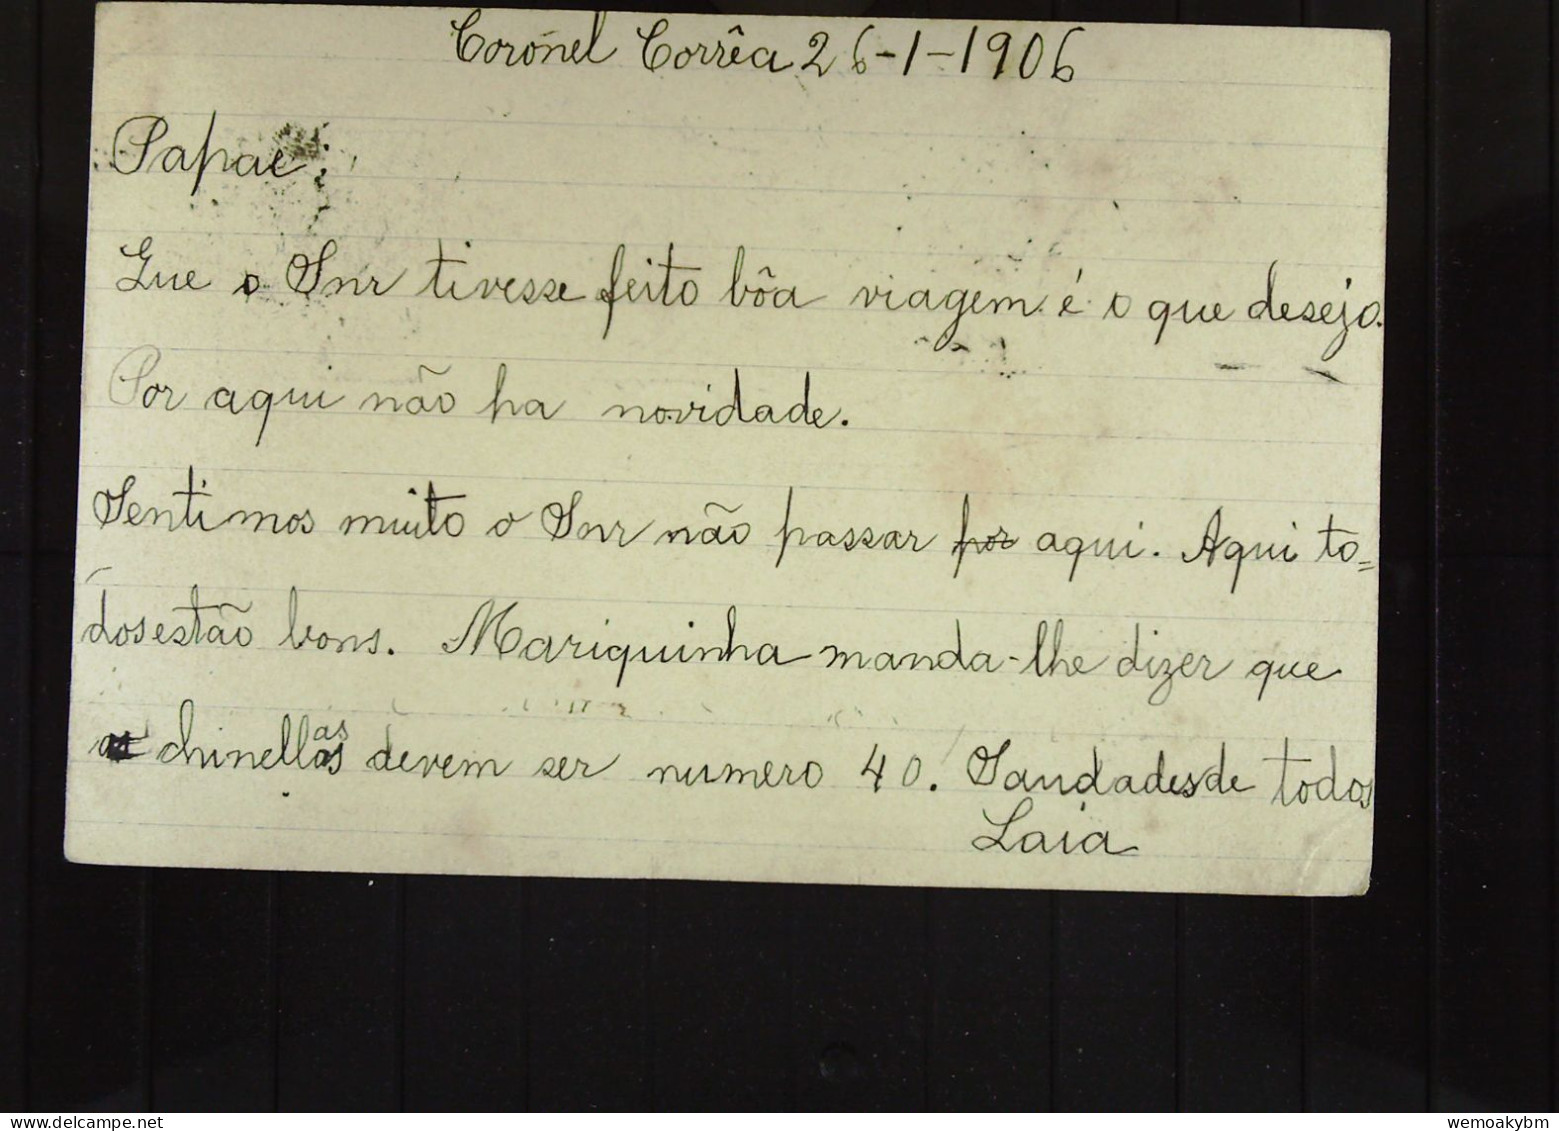 Coronel Corrêa 26-1-1906
Papae:
Que o Snr tivesse feito bôa viagem é o que desejo.
Por aqui não ha novidade.
Sentimos muito o Snr não passar por aqui. Aqui to=
dos estão bons. Mariquinha manda-lhe dizer que
as chinellas devem ser numero 40. Saudades de todos
Laia
wemoakybm